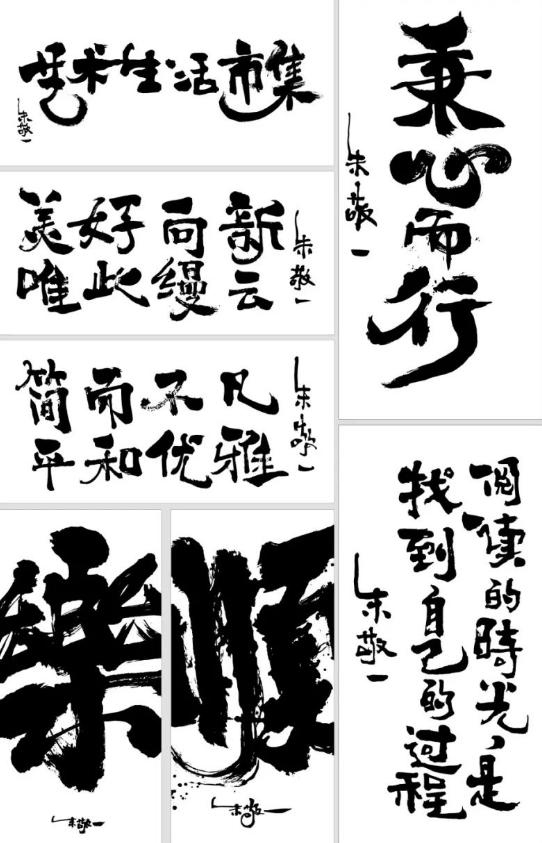 艺术生活市集
朱敬一
美好向新
唯此缦云
朱敬一
简而不凡
平和优雅
朱敬一
樂
朱敬一
順
朱敬一
秉心而行
朱敬一
阅读的時光,是
找到自己的过程
朱敬一